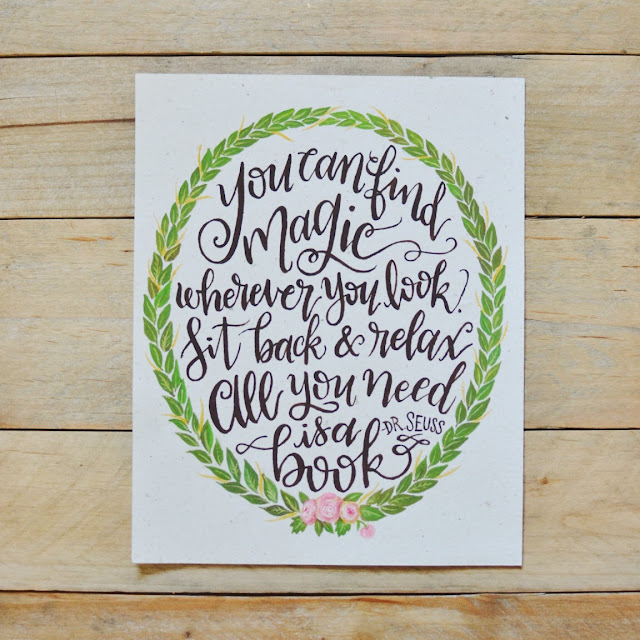 You can find
Magic
wherever you look.
Sit back & relax
All you need
is a
book
DR. SEUSS